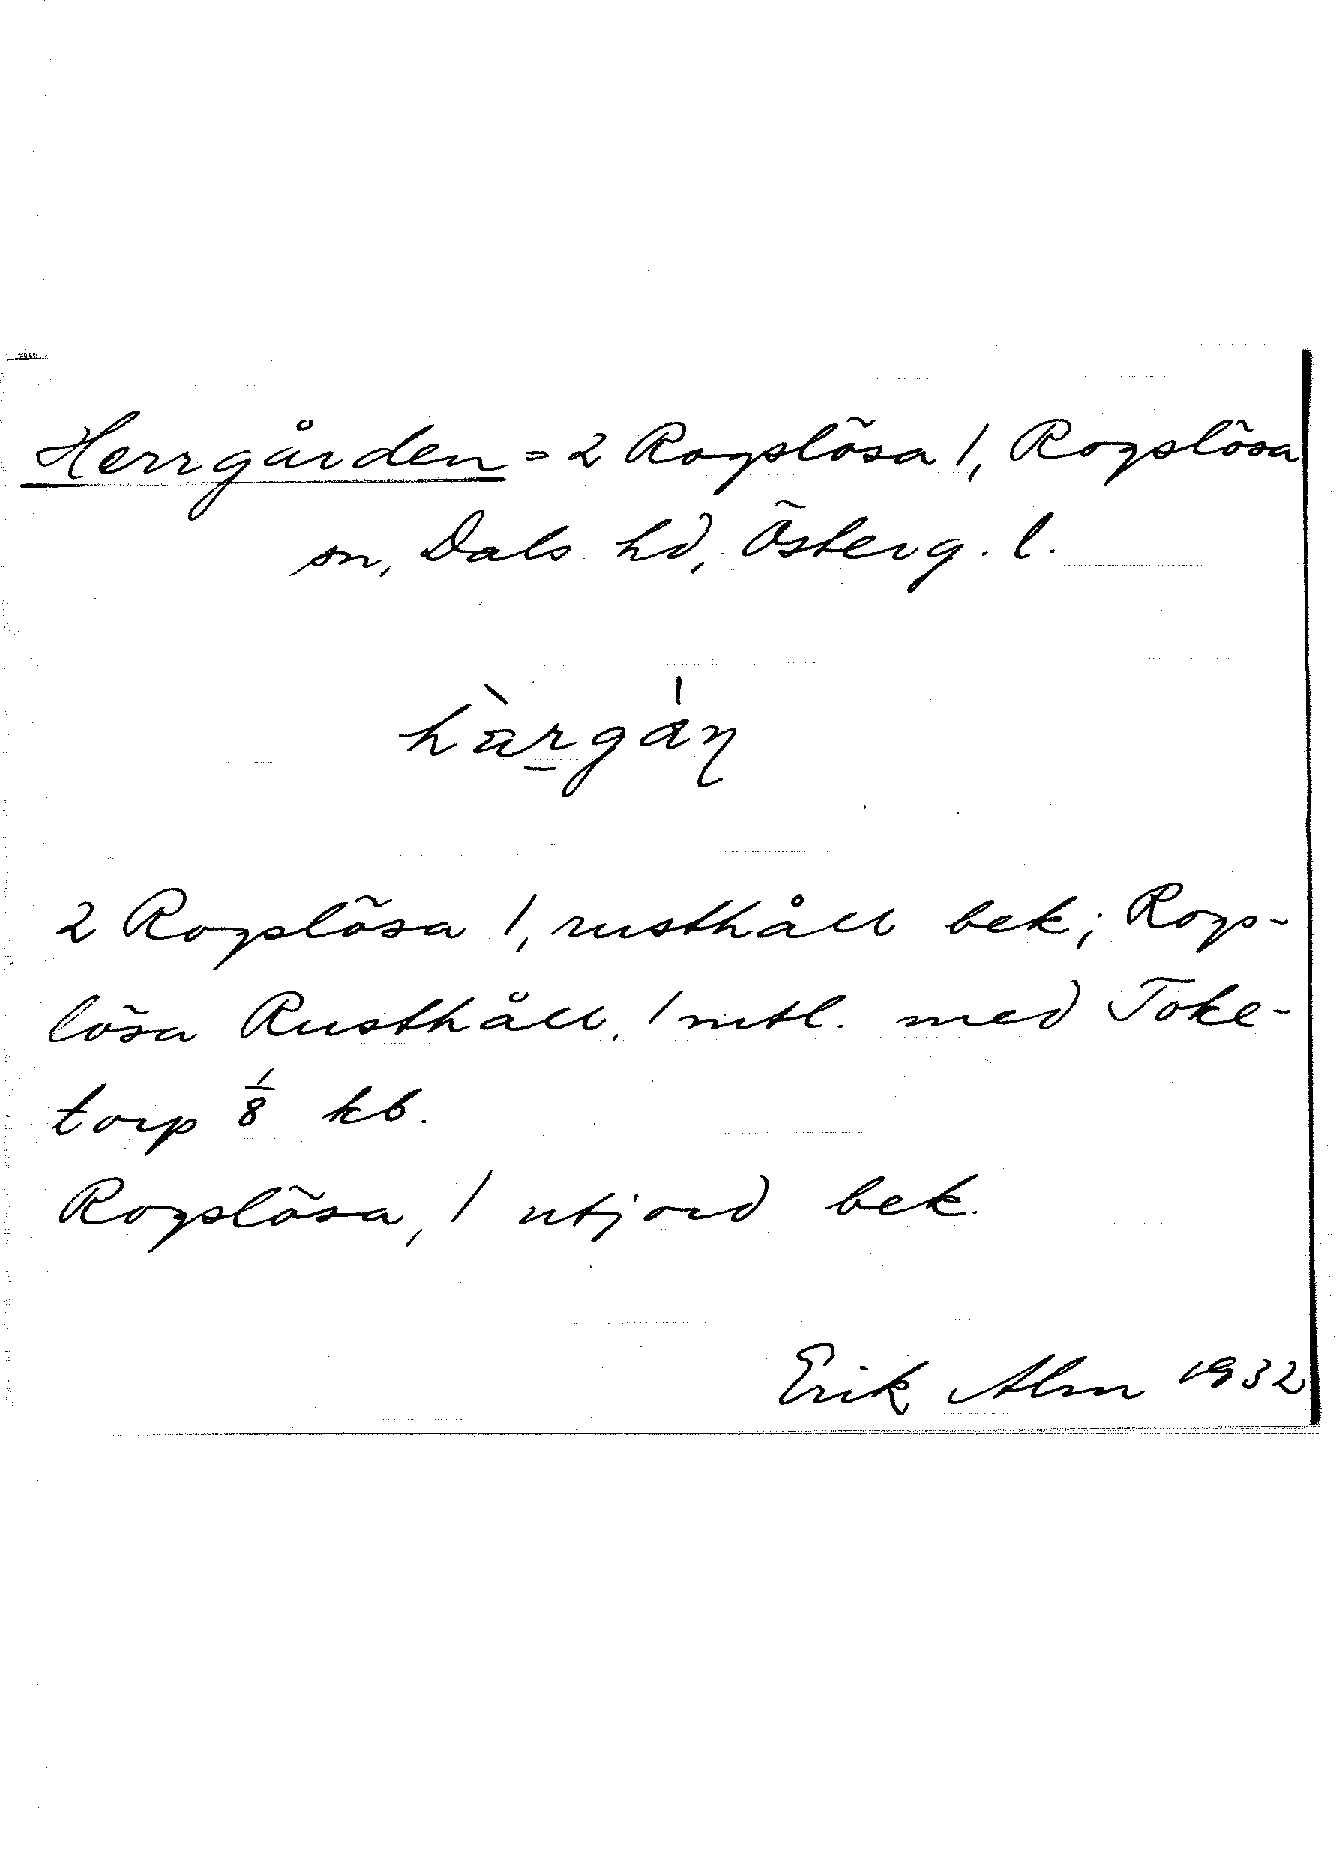 Herrgården = 2 Rogslösa 1, Rogslösa
sn, Dals hd, Österg. l.
hàrgán
2 Rogslösa 1, rusthåll bek; Rogs-
lösa Rusthåll, 1 mtl. med Toke-
torp 1/8 kb.
Rogslösa, 1 utjord bek.
Erik Alm 1932